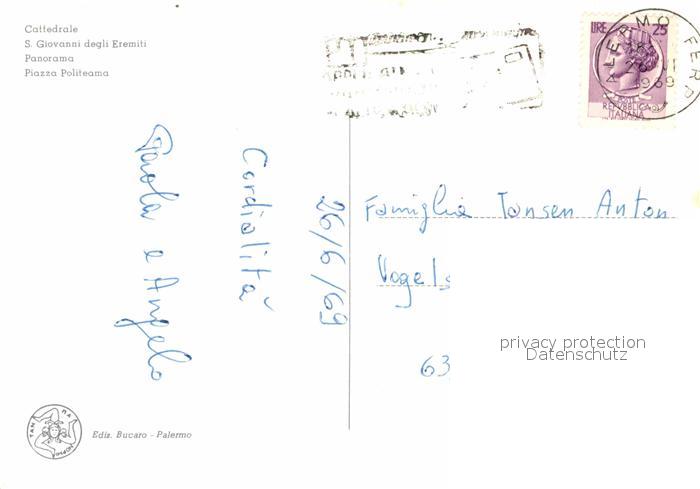 Cattedrale
S. Giovanni degli Eremiti
Panorama
Piazza Politeama
LIRE 25
REPUBBLICA
ITALIANA
PALERMO FERR
1969
Cordialità
Paola e Angelo
26/6/69
Famiglia Tansen Anton
Vogels
63
privacy protection
Datenschutz
Ediz. Bucaro - Palermo